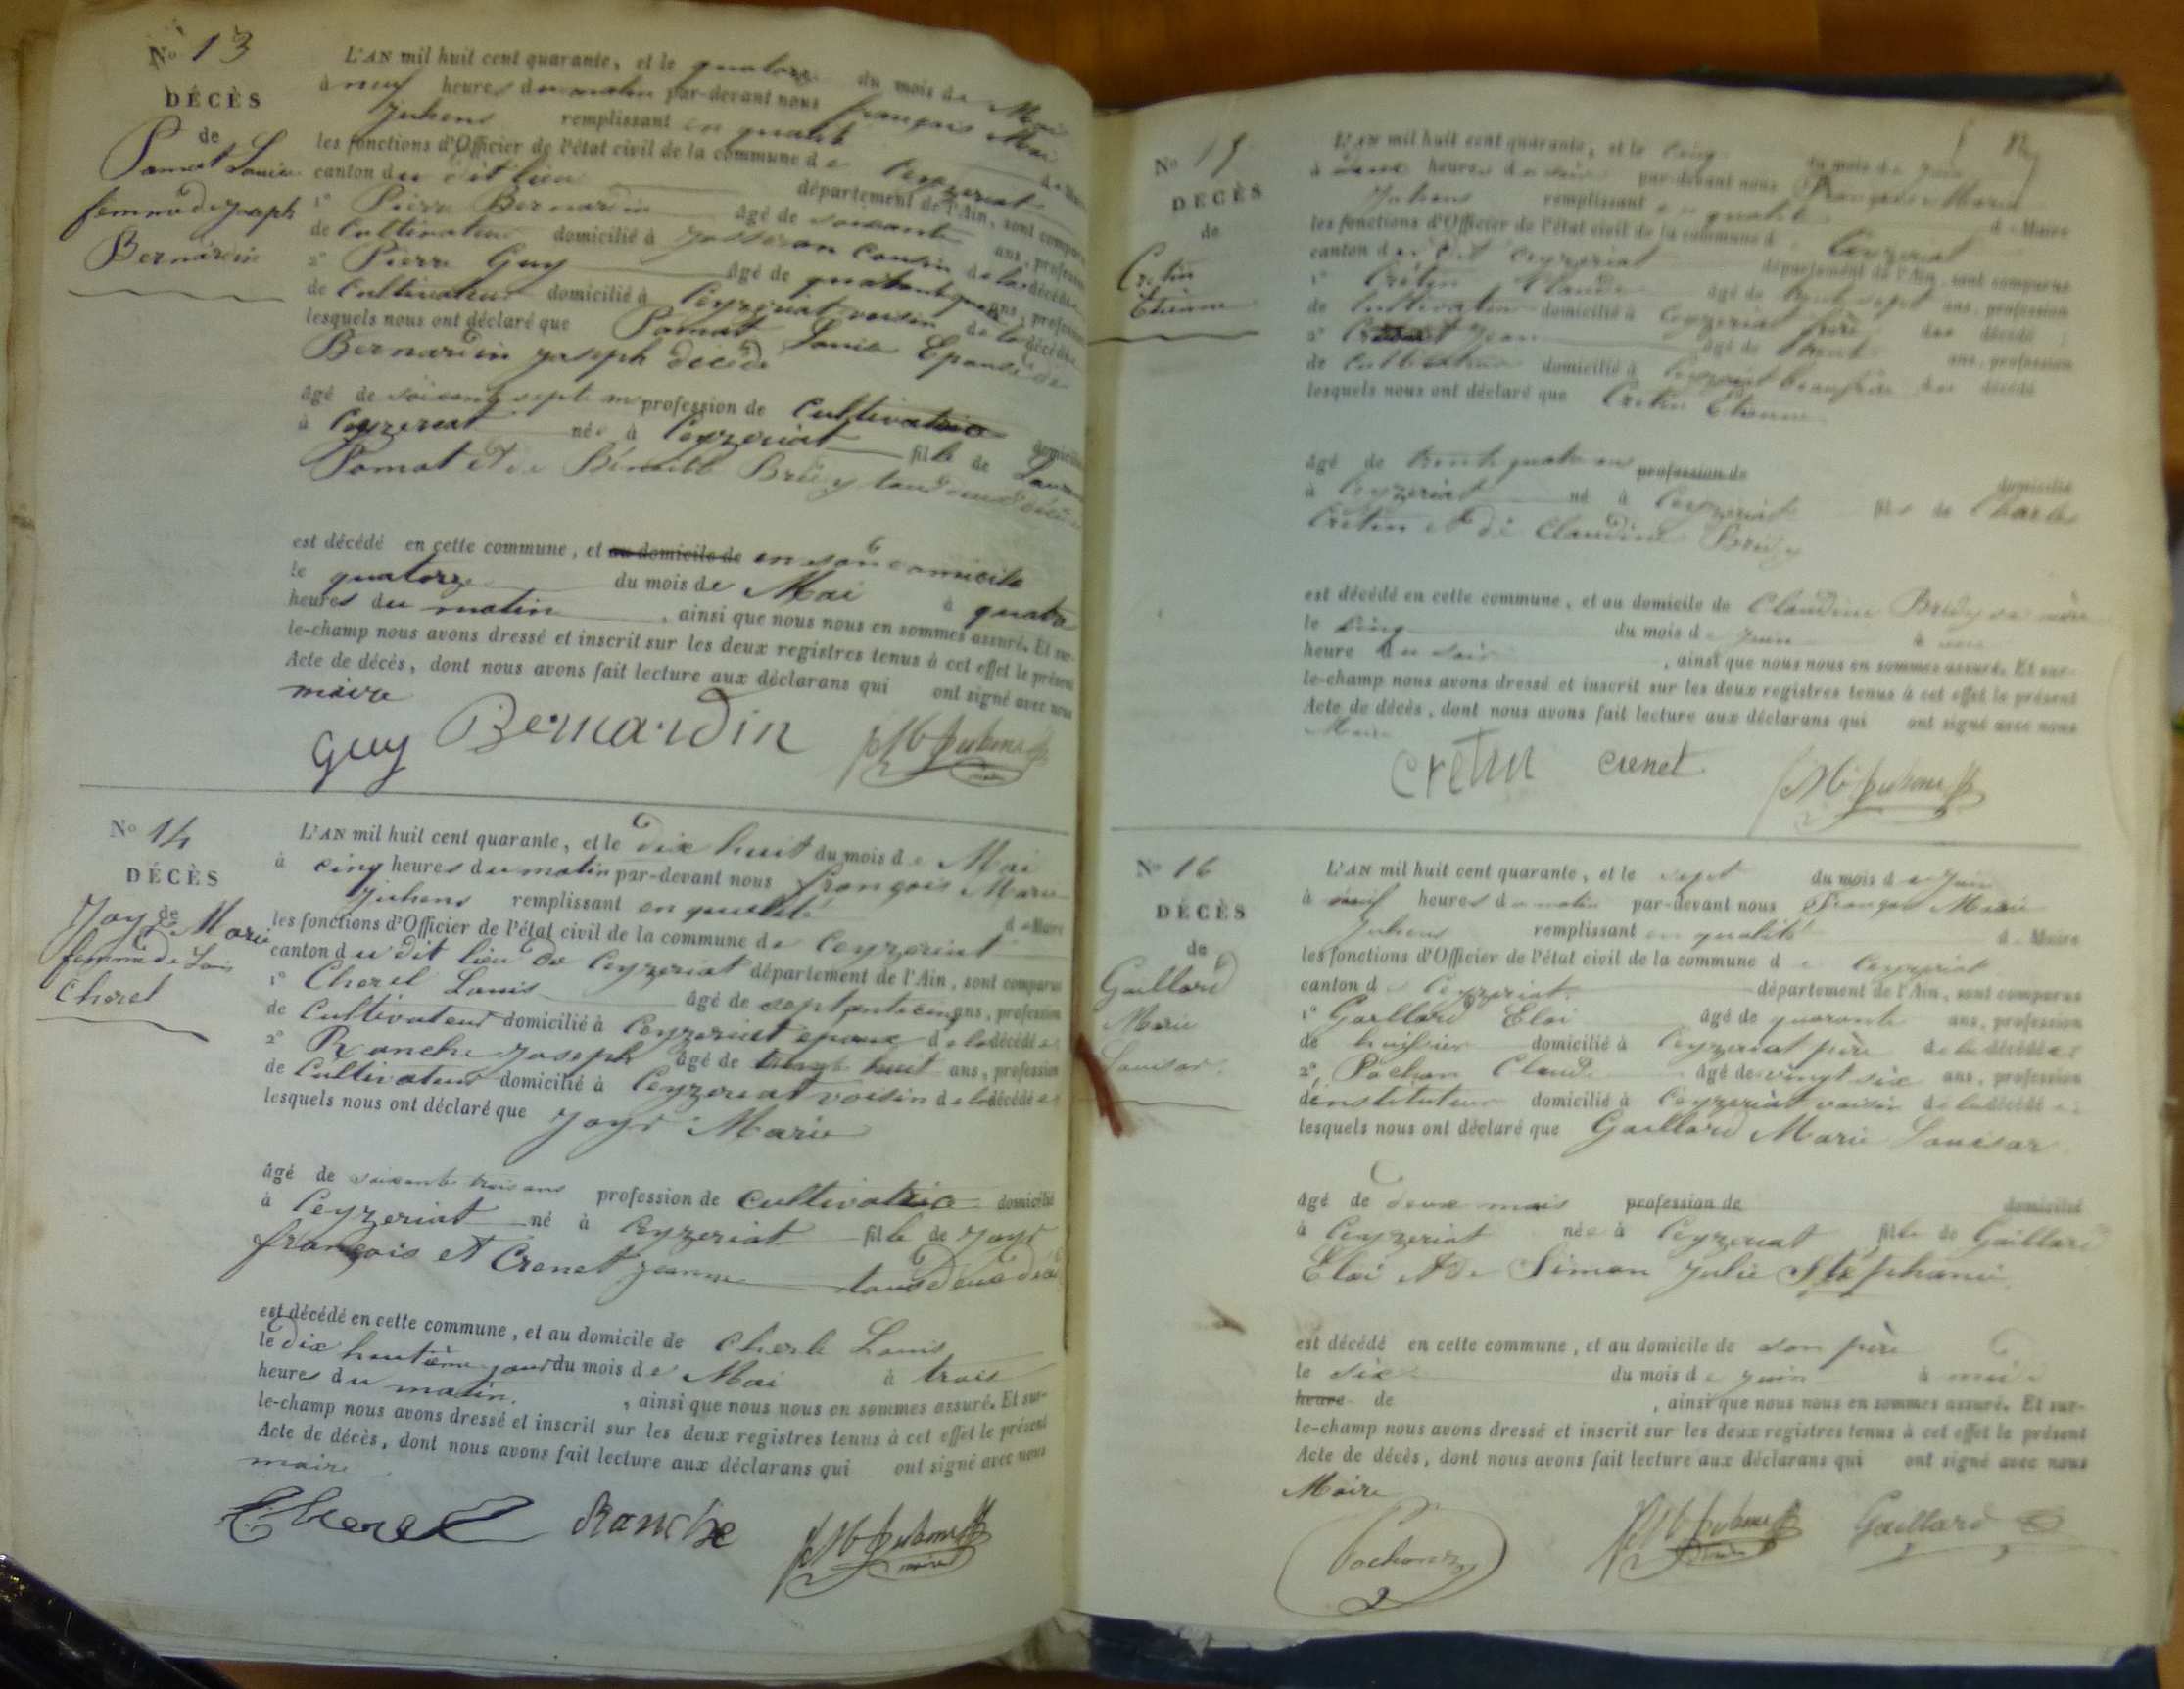 No 13
DÉCÈS
de
Pomat Louise
femme de Joseph
Bernardin
L'AN mil huit cent quarante, et le quatorze du mois de Mai
à neuf heures du matin par-devant nous françois Marie
Juhens remplissant en qualité de Maire
les fonctions d'Officier de l'état civil de la commune de Ceyzeriat
canton du dit lieu département de l'Ain, sont comparus
1° Pierre Bernardin âgé de soixante ans, profession
de Cultivateur domicilié à cousin de la décédée
2° Pierre Guy âgé de quarante ans, profession
de Cultivateur domicilié à Ceyzeriat voisin de la décédée
lesquels nous ont déclaré que Pomat Louise Epouse de
Bernardin joseph décédé
âgé de soixante sept ans profession de Cultivatrice domicilié
à Ceyzeriat née à Ceyzeriat fille de
Pomat et de Benoitte Brudy tous deux décédés
est décédé en cette commune, et au domicile de en son domicile
le quatorze du mois de Mai à quatre
heures du matin, ainsi que nous nous en sommes assuré. Et sur-
le-champ nous avons dressé et inscrit sur les deux registres tenus à cet effet le présent
Acte de décès, dont nous avons fait lecture aux déclarans qui ont signé avec nous
maire
Guy Bernardin
No 14
DÉCÈS
de
Joyr Marie
femme de Louis
Cherel
L'AN mil huit cent quarante, et le dix huit du mois de Mai
à cinq heures du matin par-devant nous françois Marie
Juhens remplissant en qualité de Maire
les fonctions d'Officier de l'état civil de la commune de Ceyzeriat
canton du dit lieu de Ceyzeriat département de l'Ain, sont comparus
1° Cherel Louis âgé de septante cinq ans, profession
de Cultivateur domicilié à Ceyzeriat epoux de la décédée
2° Ranche Joseph âgé de huit ans, profession
de Cultivateur domicilié à Ceyzeriat voisin de la décédée
lesquels nous ont déclaré que Joyr Marie
âgé de soixante trois ans profession de Cultivatrice domicilié
à Ceyzeriat né à Ceyzeriat fille de Joyr
françois et Crenet jeanne tous deux
est décédé en cette commune, et au domicile de Louis
le dix huitième jour du mois de Mai à trois
heures du matin, ainsi que nous nous en sommes assuré. Et sur-
le-champ nous avons dressé et inscrit sur les deux registres tenus à cet effet le présent
Acte de décès, dont nous avons fait lecture aux déclarans qui ont signé avec nous
maire
Cherel Ranche
No 15
DÉCÈS
de
Cretin
Etienne
L'AN mil huit cent quarante, et le cinq du mois de Juin
à heures du soir par-devant nous François Marie
Juhens remplissant en qualité de Maire
les fonctions d'Officier de l'état civil de la commune de Ceyzeriat
canton du dit Ceyzeriat département de l'Ain, sont comparus
1° Crétin Claude âgé de trente sept ans, profession
de Cultivateur domicilié à Ceyzeriat frère du décédé
2° Jean âgé de trente ans, profession
de Cultivateur domicilié à Ceyzeriat beaufrère du décédé
lesquels nous ont déclaré que Cretin Etienne
âgé de trente quatre ans profession de domicilié
à Ceyzeriat né à Ceyzeriat fils de Charles
Cretin et de Claudine Brudy
est décédé en cette commune, et au domicile de Claudine Brudy sa mère
le cinq du mois de Juin à une
heure du soir, ainsi que nous nous en sommes assuré. Et sur-
le-champ nous avons dressé et inscrit sur les deux registres tenus à cet effet le présent
Acte de décès, dont nous avons fait lecture aux déclarans qui ont signé avec nous
Maire
cretin crenet
No 16
DÉCÈS
de
Gaillard
Marie
Louisar
L'AN mil huit cent quarante, et le sept du mois de Juin
à neuf heures du matin par-devant nous François Marie
Juhens remplissant en qualité de Maire
les fonctions d'Officier de l'état civil de la commune de Ceyzeriat
canton de Ceyzeriat département de l'Ain, sont comparus
1° Gaillard Eloi âgé de quarante ans, profession
de huissier domicilié à Ceyzeriat père de la décédée
2° Pochon Claude âgé de vingt six ans, profession
d'instituteur domicilié à Ceyzeriat voisin de la décédée
lesquels nous ont déclaré que Gaillard Marie Louisar
âgé de deux mois profession de domicilié
à Ceyzeriat née à Ceyzeriat fille de Gaillard
Eloi et de Simon Julie Stéphanie
est décédé en cette commune, et au domicile de son père
le six du mois de Juin à midi
heure de, ainsi que nous nous en sommes assuré. Et sur-
le-champ nous avons dressé et inscrit sur les deux registres tenus à cet effet le présent
Acte de décès, dont nous avons fait lecture aux déclarans qui ont signé avec nous
Maire
Pochon Gaillard